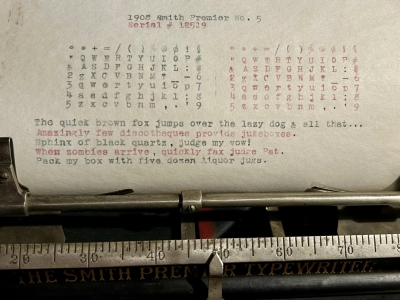 1908 Smith Premier No. 5
Serial # 12529
" Q W E R T Y U I O P #
& A S D F G H J K L : ;
2 g X C V B N M T _ - 6
3 q w e r t y u i o p 7
4 a s d f g h j k l ; 8
5 z x c v b n m , . 9
The quick brown fox jumps over the lazy dog & all that...
Amazingly few discotheques provide jukeboxes.
Sphinx of black quartz, judge my vow!
When zombies arrive, quickly fax judge Pat.
Pack my box with five dozen liquor jugs.
20 30 40 50 60 70
THE SMITH PREMIER TYPEWRITER